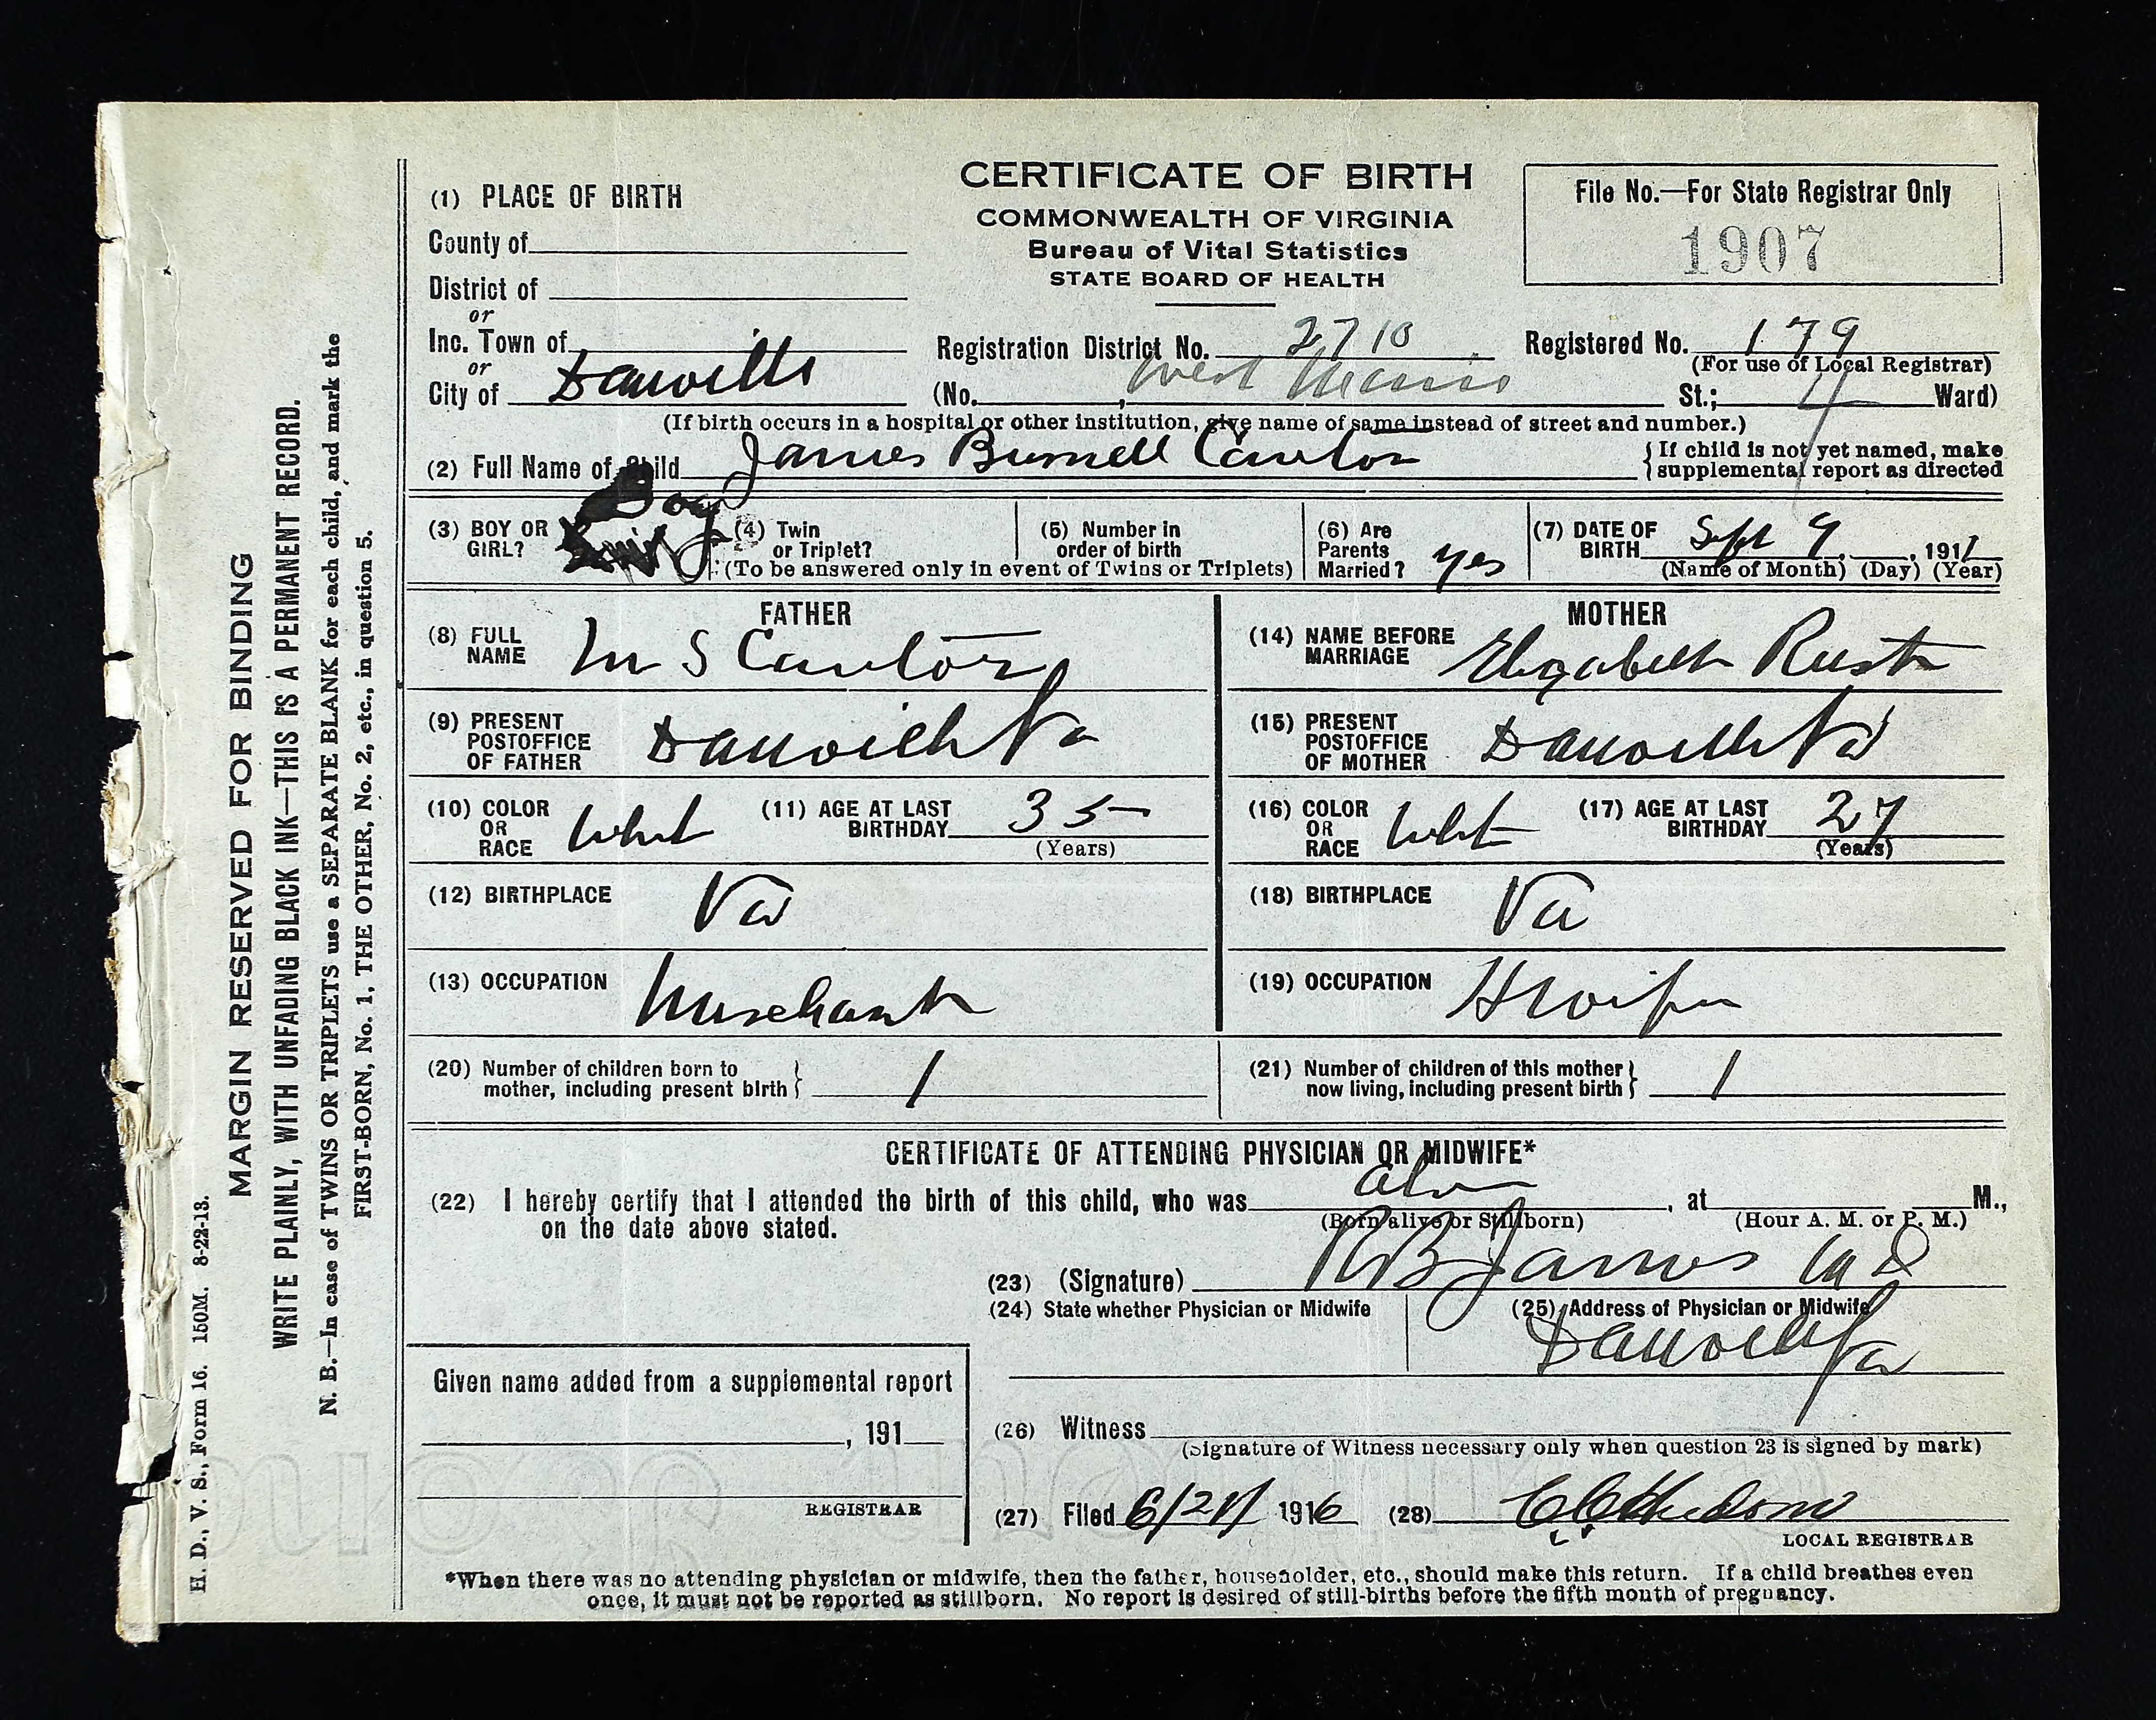 MARGIN RESERVED FOR BINDING
WRITE PLAINLY, WITH UNFADING BLACK INK—THIS IS A PERMANENT RECORD.
N. B.—In case of TWINS OR TRIPLETS use a SEPARATE BLANK for each child, and mark the
FIRST-BORN, No. 1, THE OTHER, No. 2, etc., in question 5.
H. D., V. S., Form 16. 150M. 8-22-13.
CERTIFICATE OF BIRTH
COMMONWEALTH OF VIRGINIA
Bureau of Vital Statistics
STATE BOARD OF HEALTH
File No.—For State Registrar Only
1907
(1) PLACE OF BIRTH
County of
District of
or
Inc. Town of
or
City of Danville
Registration District No. 2710
Registered No. 179
(For use of Local Registrar)
(No. , West Main St.; 4 Ward)
(If birth occurs in a hospital or other institution, give name of same instead of street and number.)
(2) Full Name of Child James Burnell Cantor
{If child is not yet named, make
supplemental report as directed
(3) BOY OR GIRL? Boy
(4) Twin or Triplet?
(5) Number in order of birth
(To be answered only in event of Twins or Triplets)
(6) Are Parents Married? yes
(7) DATE OF BIRTH Sept 9, , 191
(Name of Month) (Day) (Year)
FATHER
(8) FULL NAME M S Cantor
(9) PRESENT POSTOFFICE OF FATHER Danville Va
(10) COLOR OR RACE Whit
(11) AGE AT LAST BIRTHDAY 35
(Years)
(12) BIRTHPLACE Va
(13) OCCUPATION Merchant
MOTHER
(14) NAME BEFORE MARRIAGE Elizabeth Rust
(15) PRESENT POSTOFFICE OF MOTHER Danville Va
(16) COLOR OR RACE Whit
(17) AGE AT LAST BIRTHDAY 27
(Years)
(18) BIRTHPLACE Va
(19) OCCUPATION H wife
(20) Number of children born to mother, including present birth } 1
(21) Number of children of this mother now living, including present birth } 1
CERTIFICATE OF ATTENDING PHYSICIAN OR MIDWIFE*
(22) I hereby certify that I attended the birth of this child, who was , at M.,
(Born alive or Stillborn) (Hour A. M. or P. M.)
on the date above stated.
(23) (Signature) RB James MD
(24) State whether Physician or Midwife
(25) Address of Physician or Midwife
Danville Va
Given name added from a supplemental report
, 191
REGISTRAR
(26) Witness
(Signature of Witness necessary only when question 23 is signed by mark)
(27) Filed 6/21/ 1916 (28)
LOCAL REGISTRAR
*When there was no attending physician or midwife, then the father, householder, etc., should make this return. If a child breathes even
once, it must not be reported as stillborn. No report is desired of still-births before the fifth month of pregnancy.